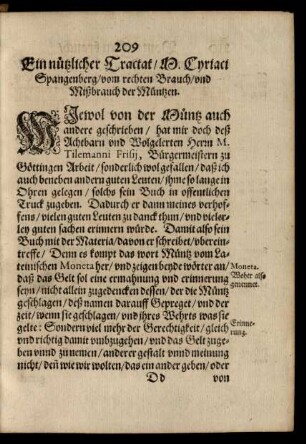 209
Ein nützlicher Tractat/ M. Cyriaci
Spangenberg/ vom rechten Brauch/ vnd
Mißbrauch der Müntzen.
WIewol von der Müntz auch
andere geschrieben/ hat mir doch deß
Achtbarn vnd Wolgelerten Herrn M.
Tilemanni Frisij, Bürgermeistern zu
Göttingen Arbeit/ sonderlich wol gefallen/ daß ich
auch beneben andern guten Leuten/ jhme so lange in
Ohren gelegen/ solchs sein Buch in offentlichen
Truck zugeben. Dadurch er dann meines verhof-
fens/ vielen guten Leuten zu danck thun/ vnd vieler-
ley guten sachen erinnern würde. Damit also sein
Buch mit der Materia/ davon er schreibet/ vberein-
treffe/ Denn es kompt das wort Müntz vom La-
teinischen Moneta her/ vnd zeigen beyde wörter an/
daß das Gelt sol eine ermahnung vnd erinnerung
seyn/ nicht allein zugedencken dessen/ der die Müntz
geschlagen/ deß namen darauff Gepreget/ vnd der
zeit/ wenn sie geschlagen/ vnd jhres Wehrts was sie
gelte: Sondern viel mehr der Gerechtigkeit/ gleich
vnd richtig damit vmbzugehen/ vnd das Gelt zuge-
ben vnnd zu nemen/ anderer gestalt vnnd meinung
nicht/ deñ wie wir wolten/ das ein ander geben/ oder
Moneta.
Woher also
genennet.
Erinne-
rung.
D d
von